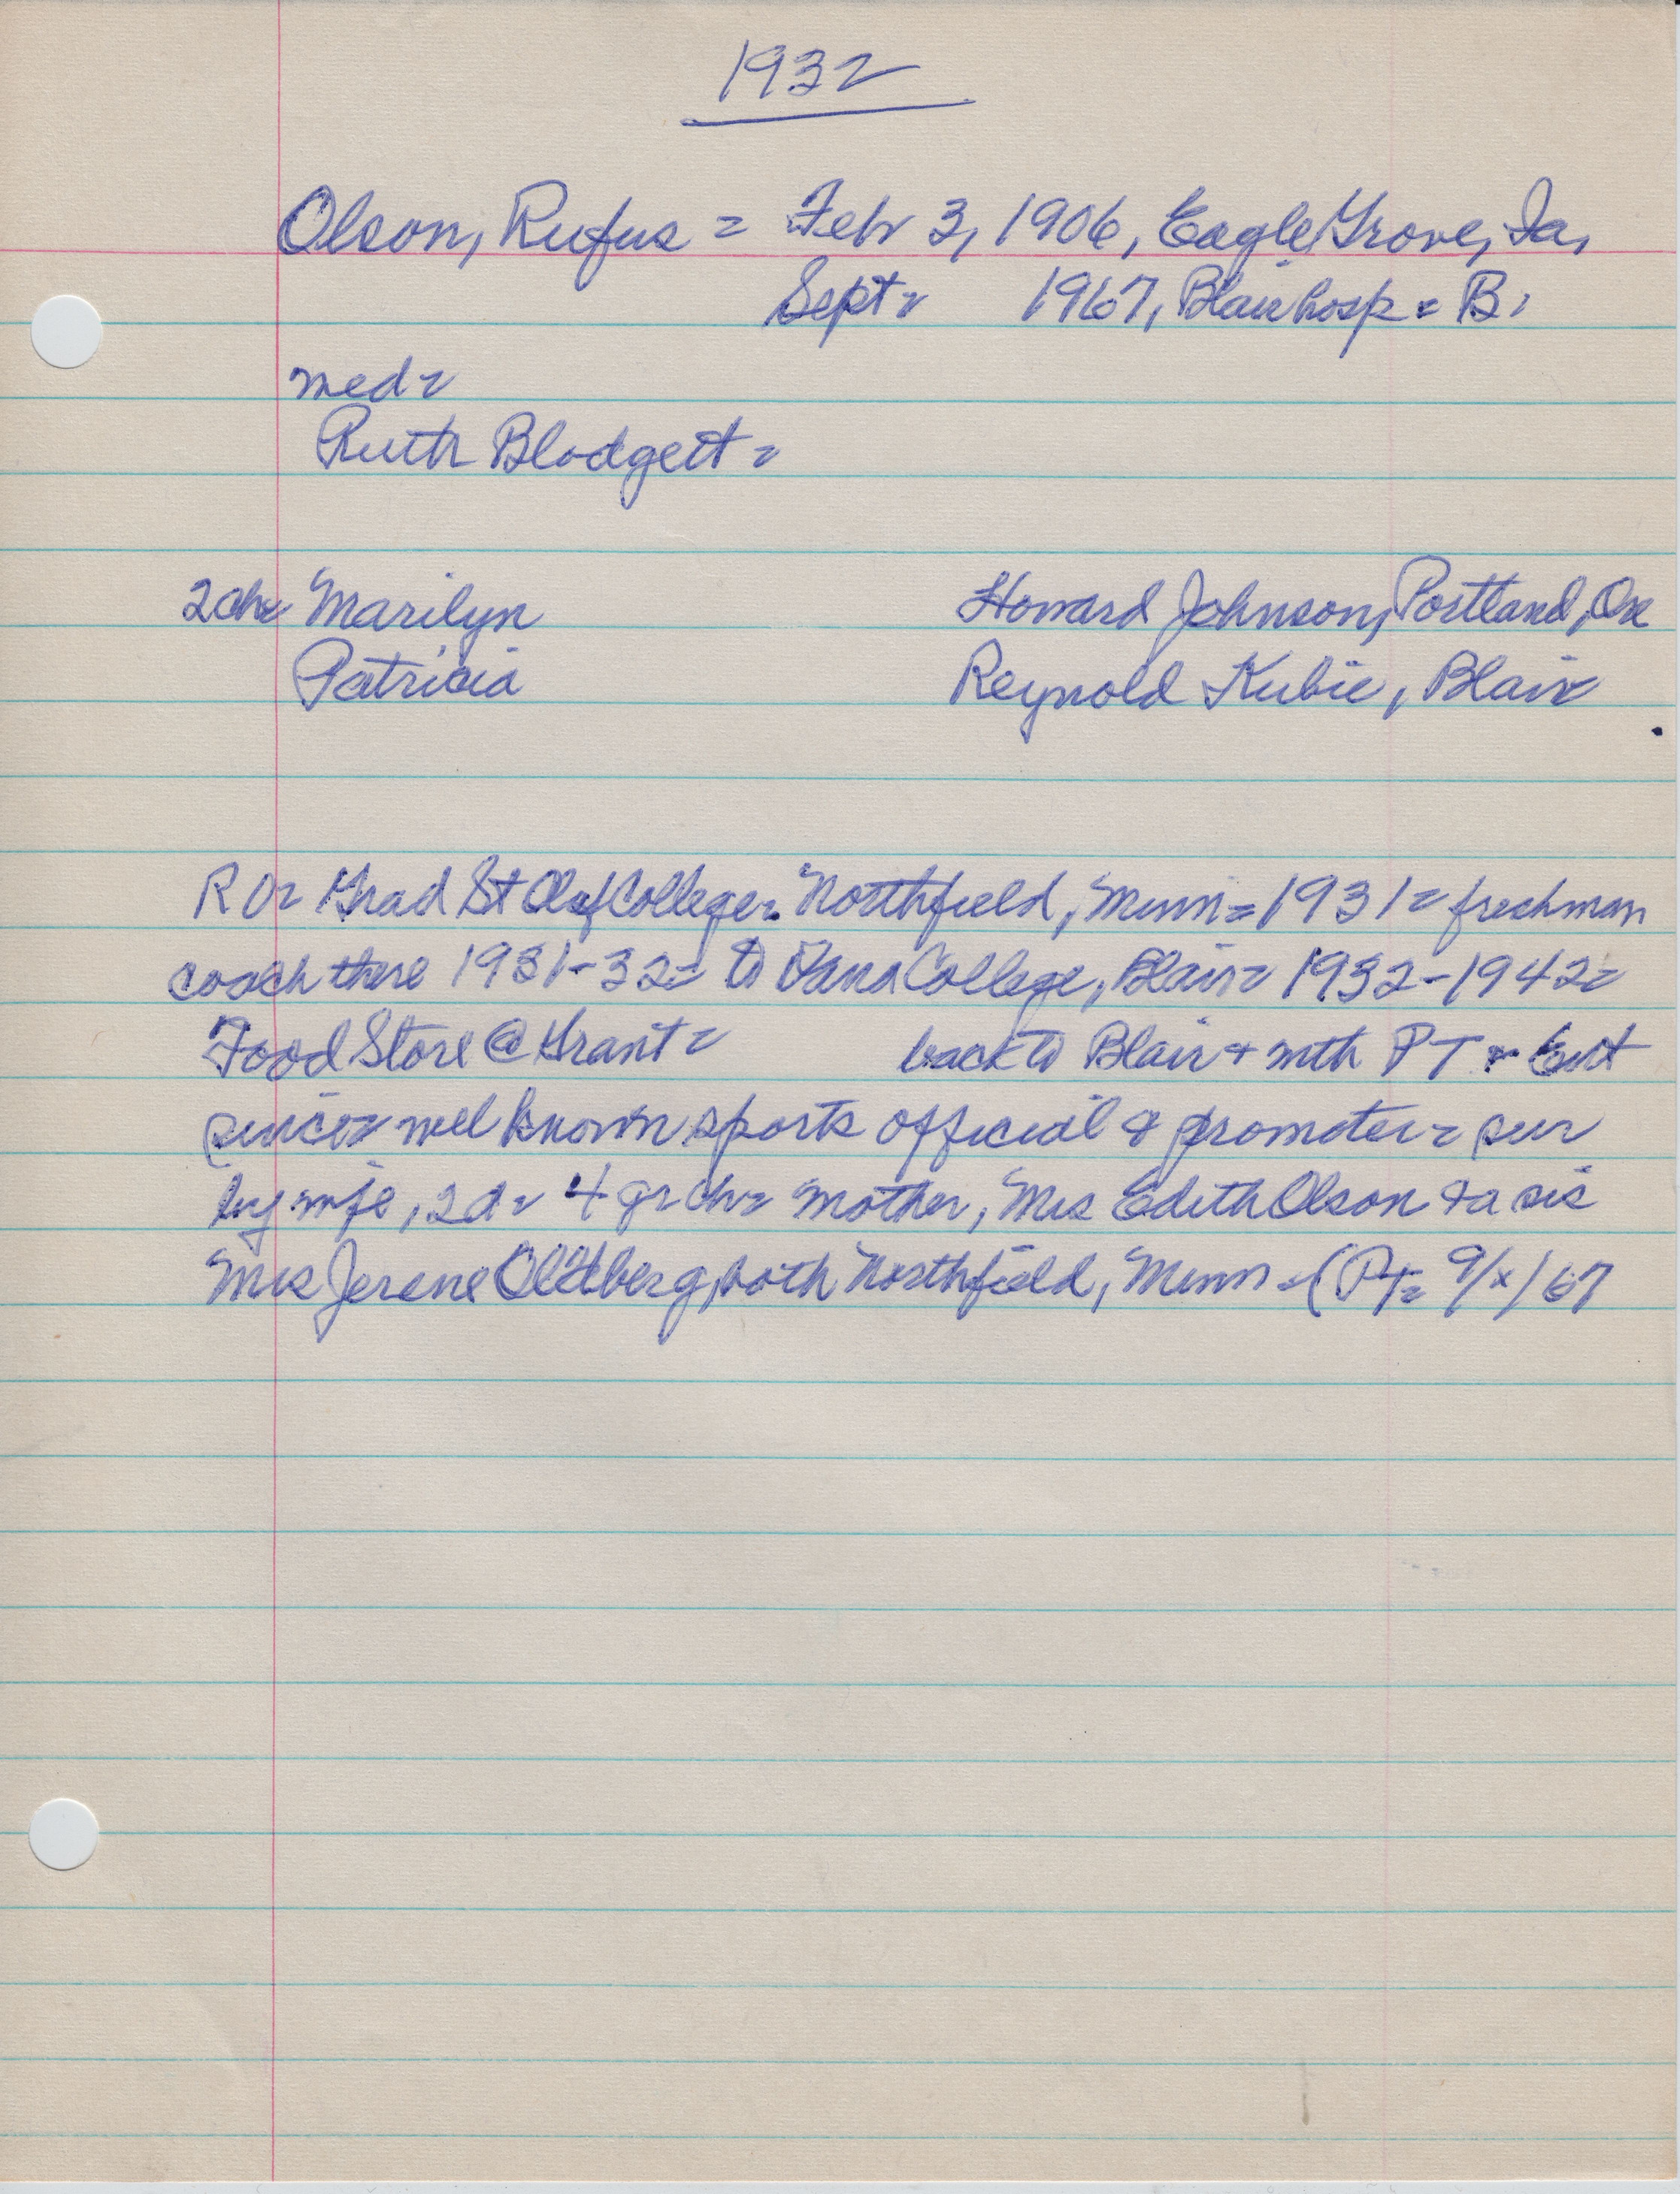 1932
Olson, Rufus = Feb 3, 1906, Eagle Grove, Ia,
Sept = 1967, Blair hosp = B,
med =
Ruth Blodgett =
2 ch = Marilyn Howard Johnson, Portland, Ore
Patricia Reynold Kubie, Blair
R O = Grad St Olaf College = Northfield, Minn = 1931 = freshman
coach there 1931-32 = to Dana College, Blair = 1932-1942 =
Food Store @ Grant = back to Blair + with PT = Ent
since = well known sports official & promoter = sur
by wife, 2 d = 4 gr ch = mother, Mrs Edith Olson + a sis
Mrs Jerene Oldberg, both Northfield, Minn = (PT = 9/x/67